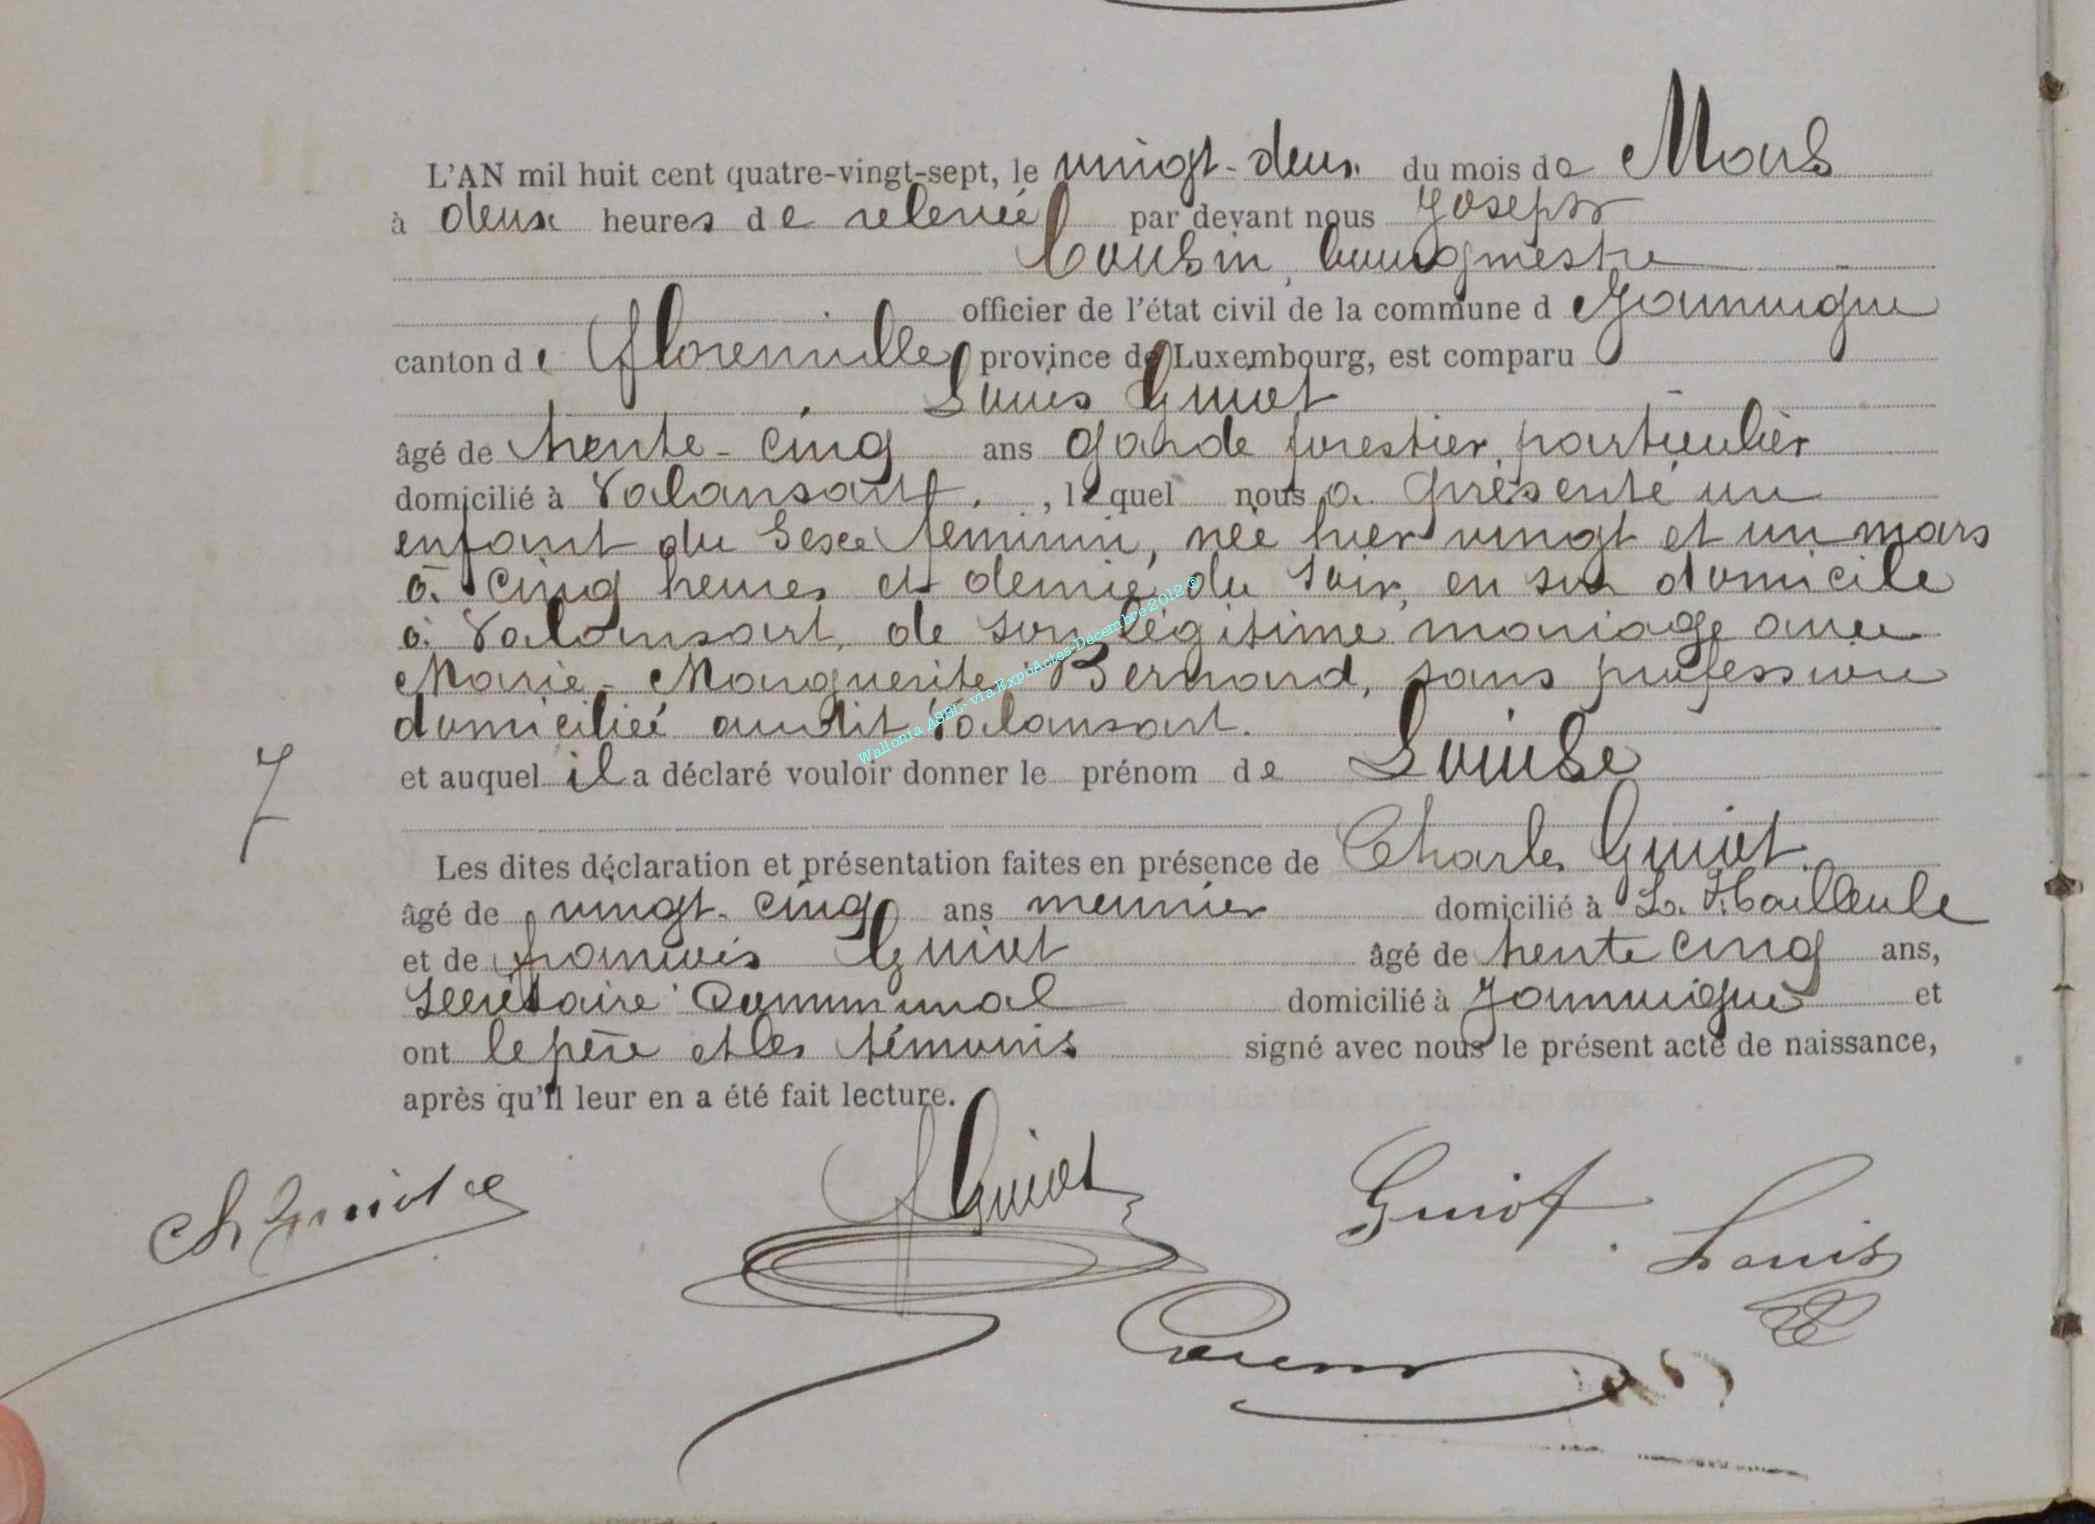 L'AN mil huit cent quatre-vingt-sept, le vingt-deux du mois de Mars
à deux heures de relevée par devant nous Joseph
Cousin, bourgmestre
officier de l'état civil de la commune d Jamoigne
canton de Florenville province de Luxembourg, est comparu
Louis Guiot
âgé de trente-cinq ans garde forestier particulier
domicilié à Valansart, lequel nous a présenté un
enfant du sexe féminin, née hier vingt et un mars
à cinq heures et demie du soir, en son domicile
à Valansart, de son légitime mariage avec
Marie-Marguerite Bernard, sans profession
domiciliée audit Valansart.
et auquel il a déclaré vouloir donner le prénom de Louise
7
Les dites déclaration et présentation faites en présence de Charles Guiot
âgé de vingt-cinq ans meunier domicilié à La Hailleule
et de François Guiot âgé de trente cinq ans,
secrétaire communal domicilié à Jamoigne et
ont le père et les témoins signé avec nous le présent acte de naissance,
après qu'il leur en a été fait lecture.
Ch Guiot
F Guiot
Guiot Louis
Cousin
Wallonia ASBL- via ExpoActes-Décembre 2012 ©